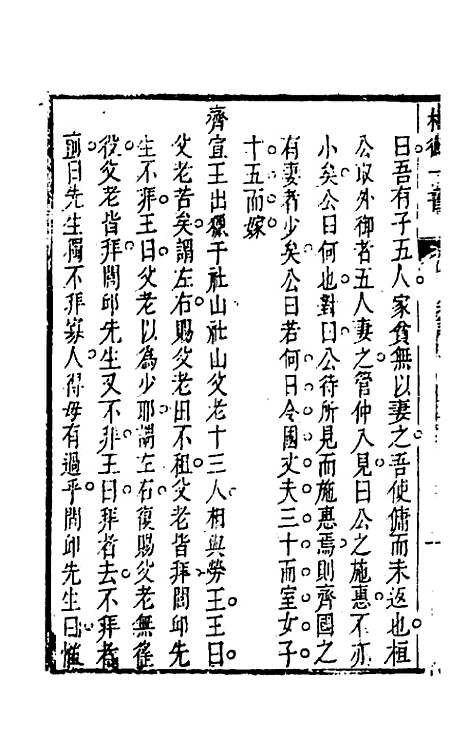 曰吾有子五人家貧無以妻之吾使傭而未返也桓
公取外御者五人妻之管仲入見曰公之施惠不亦
小矣公曰何也對曰公待所見而施惠焉則齊國之
有妻者少矣公曰若何曰令國丈夫三十而室女子
十五而嫁
齊宣王出獵于社山社山父老十三人相與勞王王曰
父老苦矣謂左右賜父老田不租父老皆拜閭邱先
生不拜王曰父老以為少耶謂左右復賜父老無徭
役父老皆拜閭邱先生又不拜王曰拜者去不拜者
前曰先生獨不拜寡人得毋有過乎閭邱先生曰惟